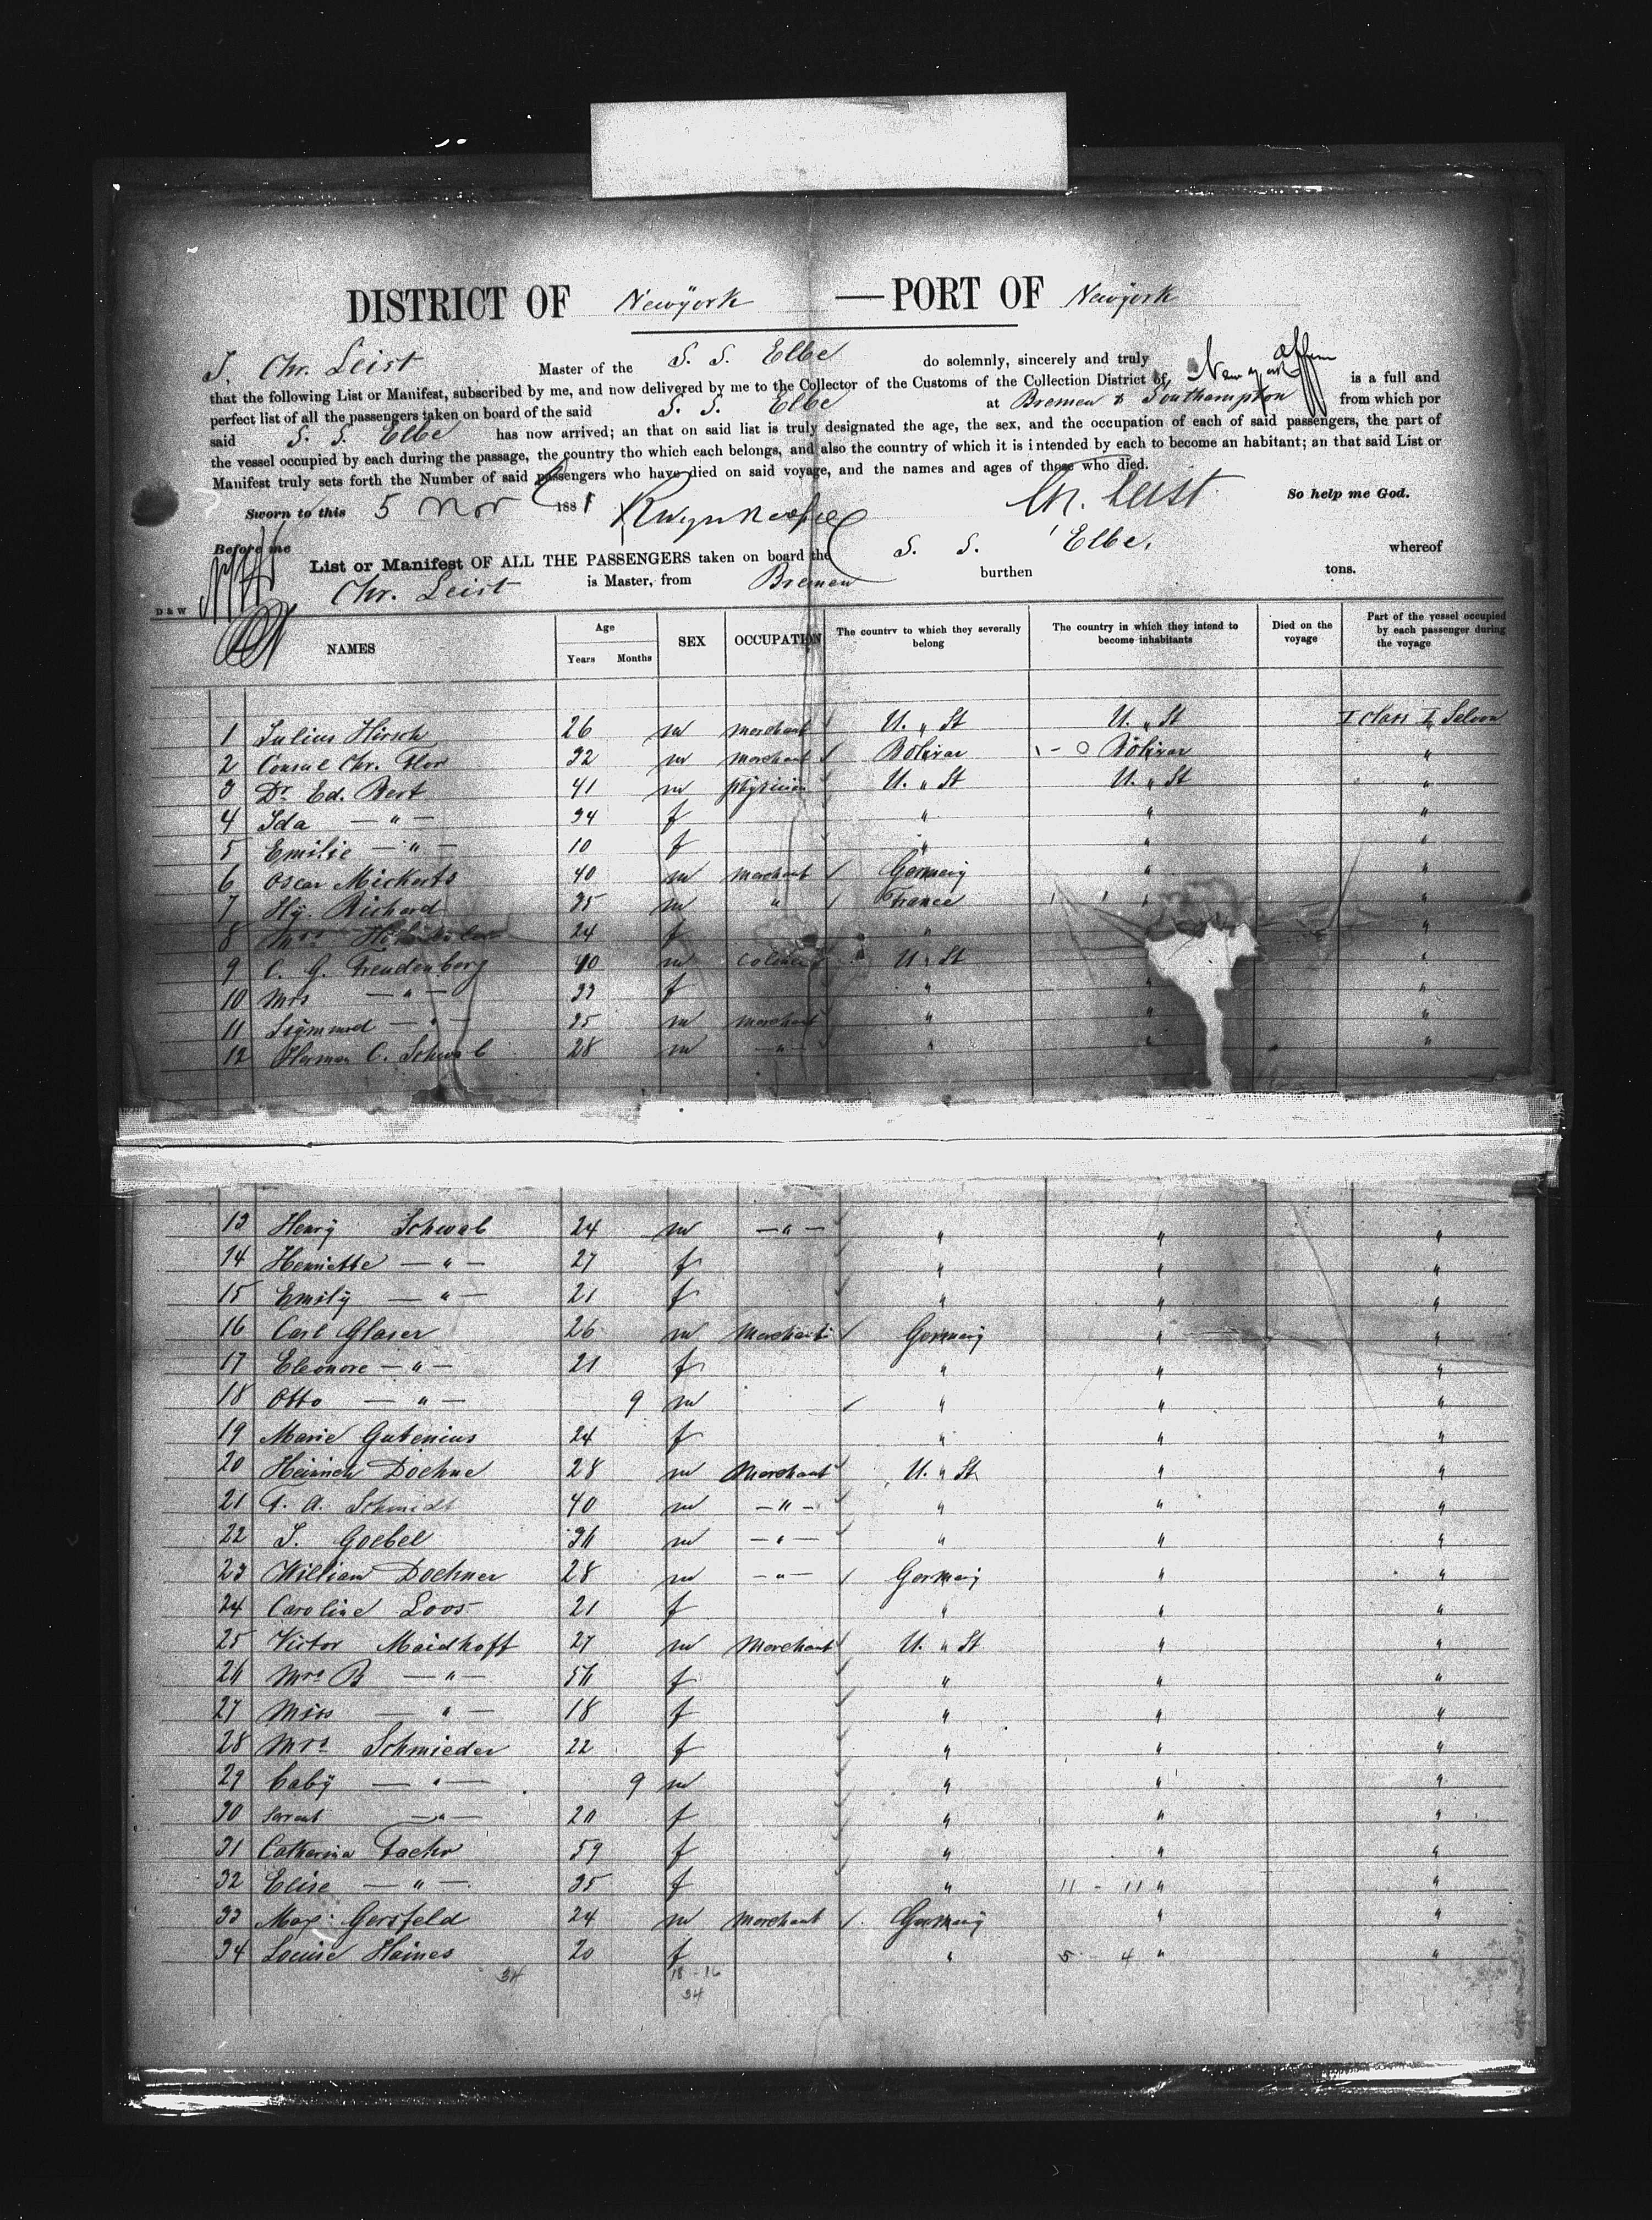 DISTRICT OF Newyork — PORT OF Newyork
I. Chr. Leist Master of the S. S. Elbe do solemnly, sincerely and truly affirm
that the following List or Manifest, subscribed by me, and now delivered by me to the Collector of the Customs of the Collection District of, New york is a full and
perfect list of all the passengers taken on board of the said S. S. Elbe at Bremen & Southampton from which por
said S. S. Elbe has now arrived; an that on said list is truly designated the age, the sex, and the occupation of each of said passengers, the part of
the vessel occupied by each during the passage, the country tho which each belongs, and also the country of which it is intended by each to become an habitant; an that said List or
Manifest truly sets forth the Number of said passengers who have died on said voyage, and the names and ages of those who died.
Sworn to this 5 Nov 1881 Chr. Leist So help me God.
Before me
List or Manifest OF ALL THE PASSENGERS taken on board the S. S. Elbe, whereof
Chr. Leist is Master, from Bremen burthen tons.
D & W
NAMES Age Years Months SEX OCCUPATION The country to which they severally belong The country in which they intend to become inhabitants Died on the voyage Part of the vessel occupied by each passenger during the voyage
1 Julius Hirsch 26 m merchant U. " St U. " St I Class I Saloon
2 Consul Chr. Flor 32 m merchant Bolivar 1 - 0 Bolivar "
3 Dr. Ed. Bert 41 m physician U. " St U. " St "
4 Ida — " — 34 f " " "
5 Emilie — " — 10 f " " "
6 Oscar Mickerts 40 m merchant Germany " "
7 Hy. Richard 35 m " France " "
8 Mrs 24 f " "
9 C. G. Freudenberg 40 m U. " St "
10 Mrs — " — 33 f " " "
11 Sigmund — " — 25 m merchant " " "
12 Herman C. Schwab 28 m — " — " " "
13 Henry Schwab 24 m — " — " " "
14 Henriette — " — 27 f " " "
15 Emily — " — 21 f " " "
16 Carl Glaser 26 m Merchant Germany " "
17 Eleonore — " — 21 f " " "
18 Otto — " — 9 m " " "
19 Marie Gubenius 24 f " " "
20 Heinrich Doehne 28 m Merchant U. " St " "
21 F. A. Schmidt 40 m — " — " " "
22 J. Goebel 36 m — " — " " "
23 William Dochner 28 m — " — Germany " "
24 Caroline Loos 21 f " " "
25 Victor Maidhoff 27 m Merchant U. " St " "
26 Mrs B — " — 56 f " " "
27 Miss — " — 18 f " " "
28 Mrs Schmieder 22 f " " "
29 baby — " — 9 m " " "
30 Servant — " — 20 f " " "
31 Catharina Faehr 59 f " " "
32 Elise — " — 35 f " 11 - 11 " "
33 Max Gersfeld 24 m Merchant Germany " "
34 Louise Haines 20 f " 5 4 " "
34 18 - 16
34